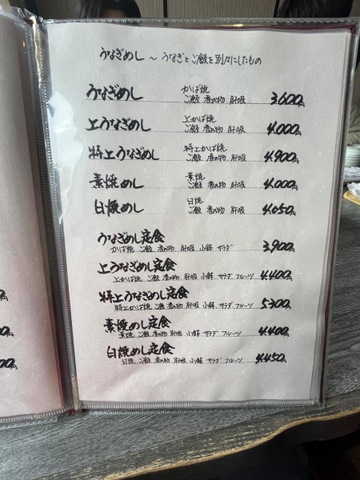 うなぎめし 〜 うなぎとご飯を別々にしたもの
うなぎめし かば焼 ご飯 香の物 肝吸 3.600円
上うなぎめし 上かば焼 ご飯 香の物 肝吸 4.000円
特上うなぎめし 特上かば焼 ご飯 香の物 肝吸 4.900円
素焼めし 素焼 ご飯 香の物 肝吸 4.000円
白焼めし 白焼 ご飯 香の物 肝吸 4.050円
うなぎめし定食
かば焼 ご飯 香の物 肝吸 小鉢 サラダ 3.900円
上うなぎめし定食
上かば焼 ご飯 香の物 肝吸 小鉢 サラダ フルーツ 4.400円
特上うなぎめし定食
特上かば焼 ご飯 香の物 肝吸 小鉢 サラダ フルーツ 5.300円
素焼めし定食
素焼 ご飯 香の物 肝吸 小鉢 サラダ フルーツ 4.400円
白焼めし定食
白焼 ご飯 香の物 肝吸 小鉢 サラダ フルーツ 4.450円